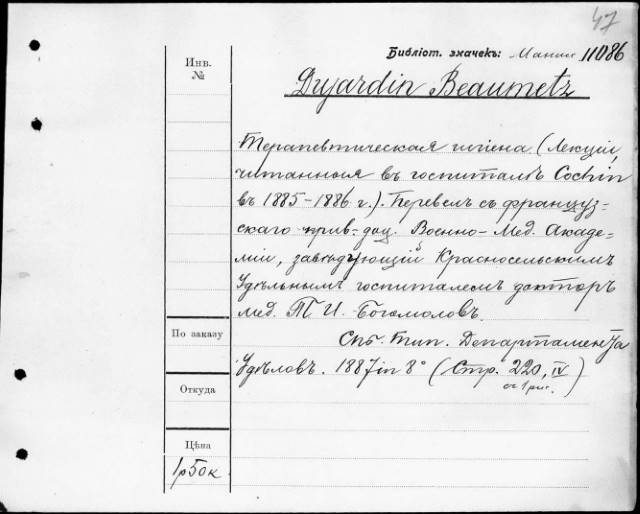 47
Библіот. значекъ: Манин 11086
Инв. №
Dujardin Beaumetz
Терапевтическая гигіена (Лекціи,
читанныя въ госпиталѣ Cochin
въ 1885-1886 г.). Перевелъ съ француз-
скаго прив-доц. Военно-Мед. Академ-
міи, завѣдующій Красносельскимъ
Удѣльнымъ госпиталемъ докторъ
мед. Т. И. Богомоловъ.
По заказу
Спб. Тип. Департамента
Удѣловъ. 1887 in 8° (Стр. 220, IV)
съ 1 рис.
Откуда
Цѣна
1р50к